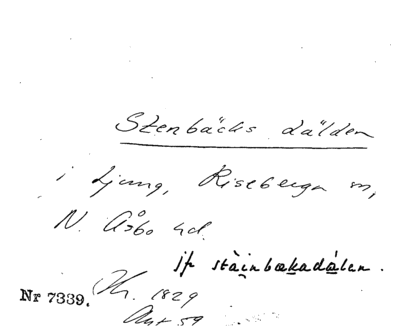 Stenbäcks dälden
i Ljung, Riseberga sn,
N. Åsbo hd.
jfr stàinbækadálen.
Nr 7339. Kr. 1829
Ant 59